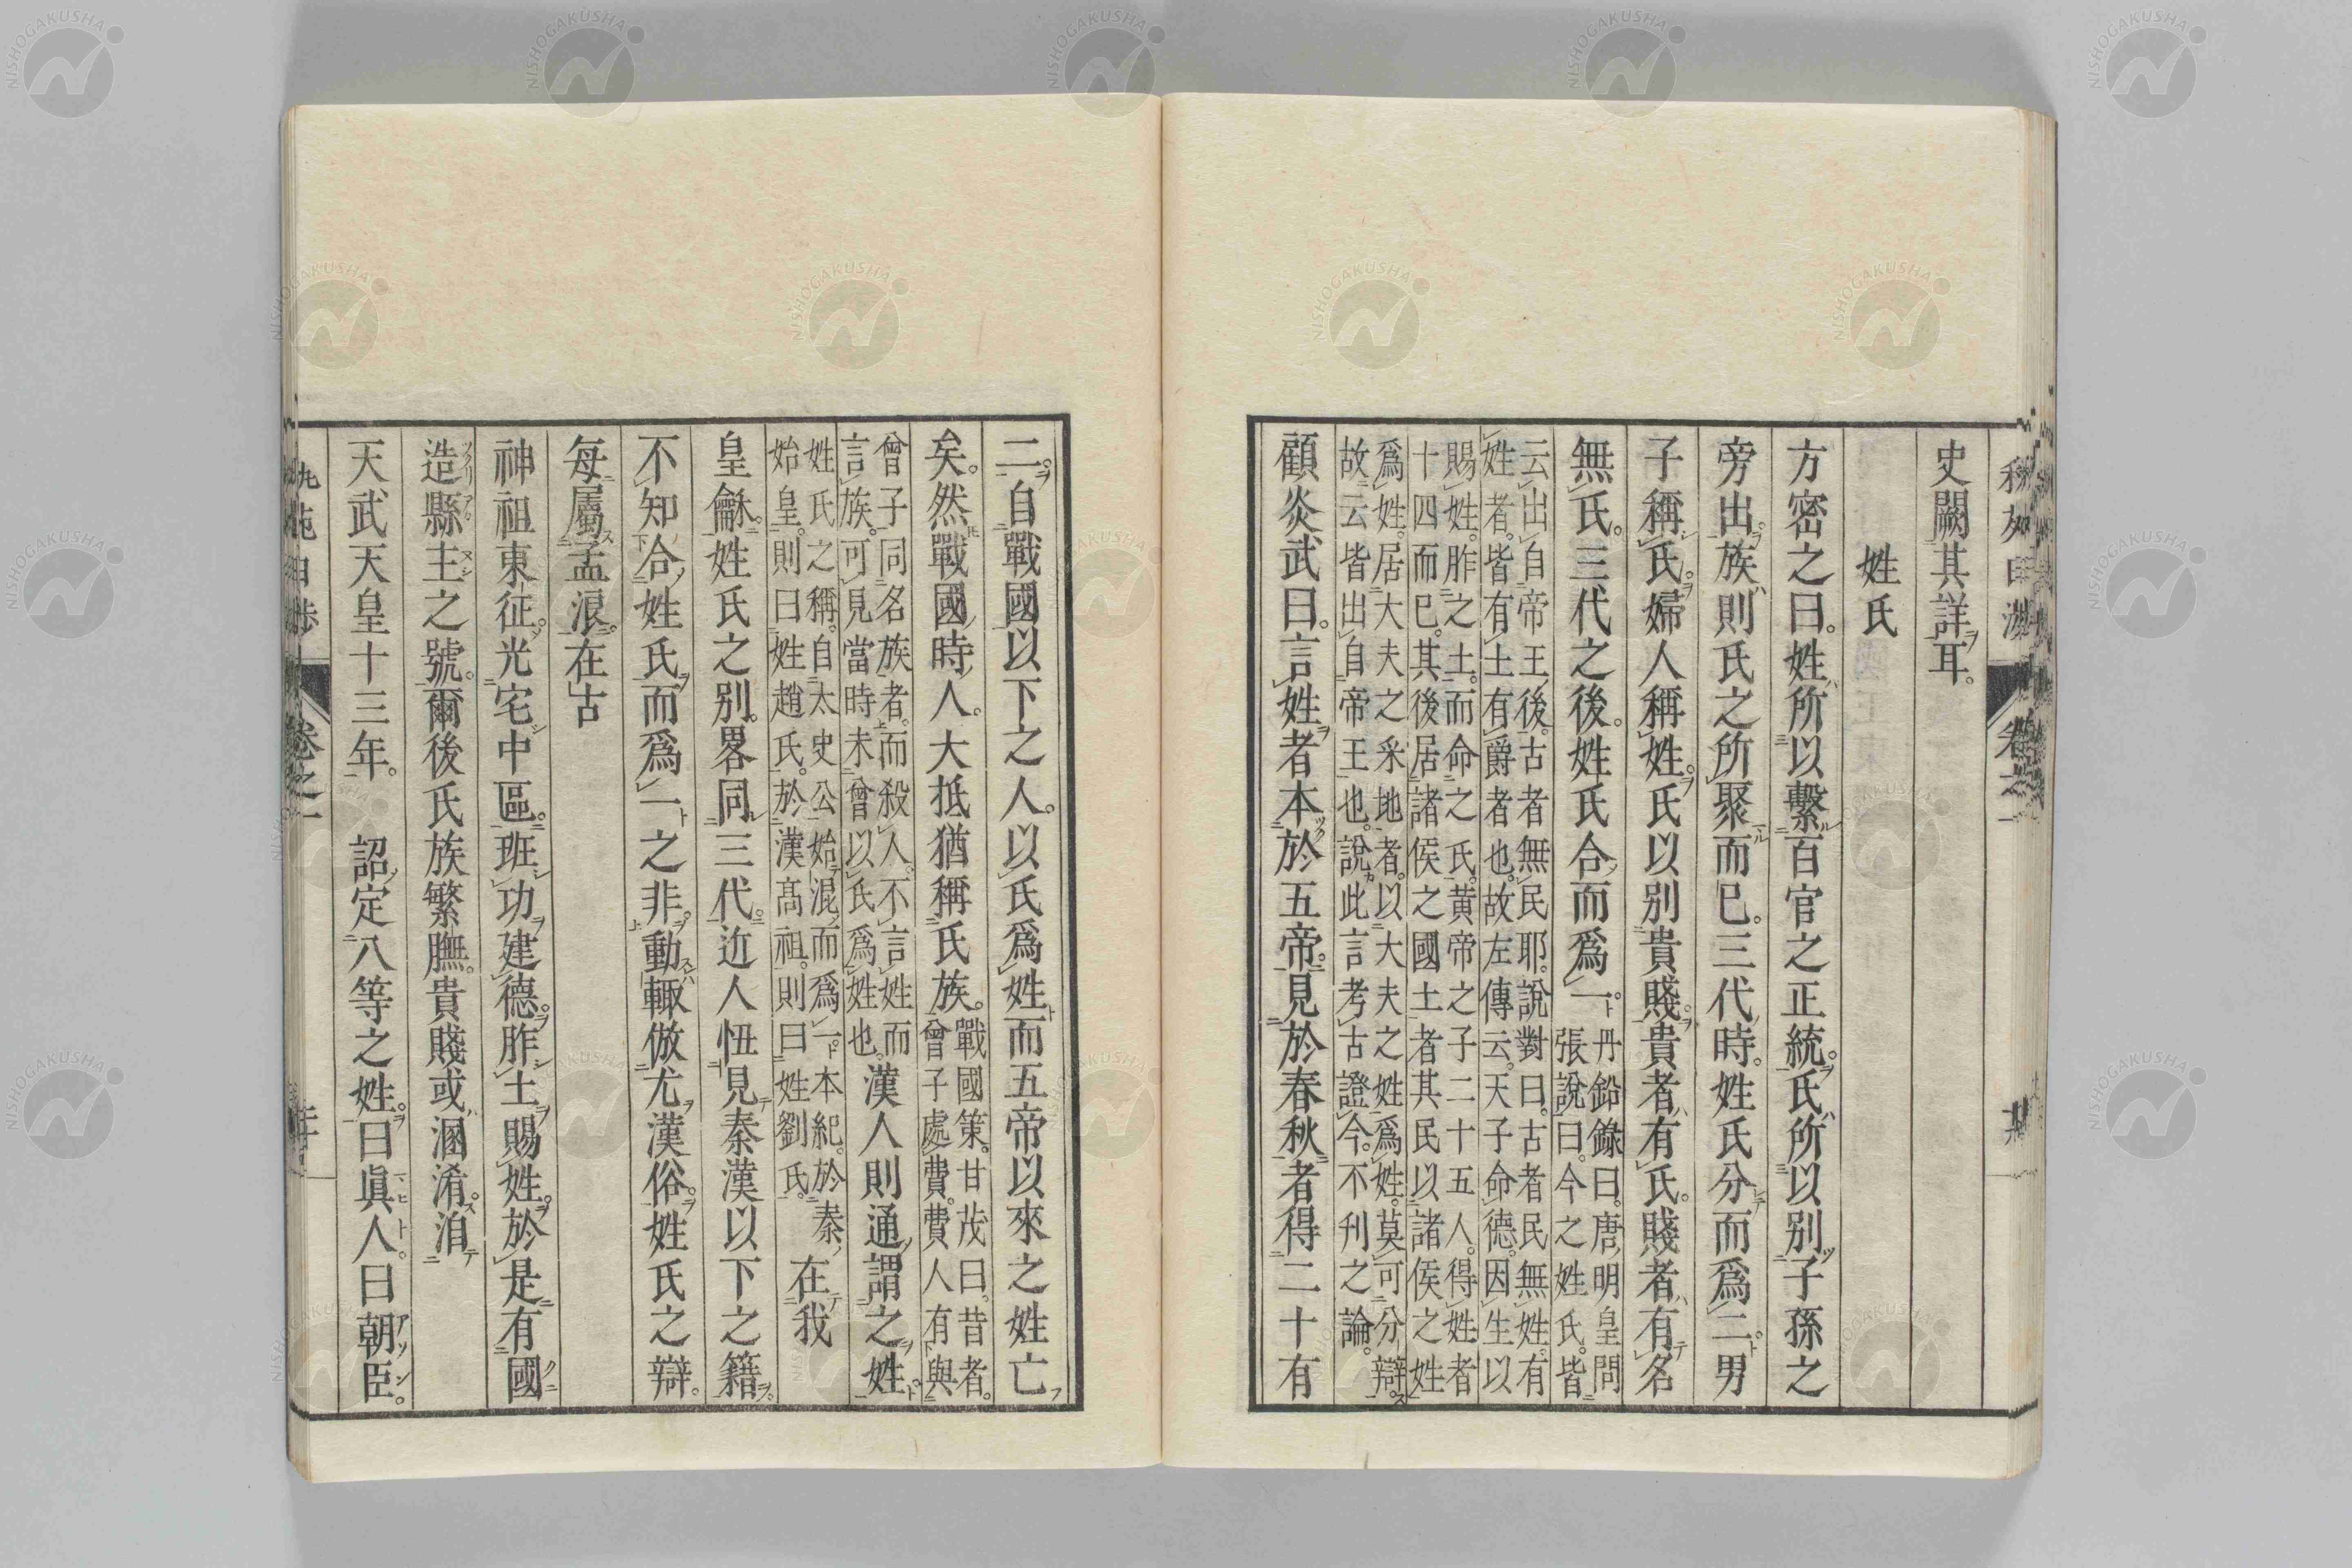 史闕其詳耳。
姓氏
方密之曰。姓所以繫百官之正統。氏所以別子孫之
旁出。族則氏之所聚而巳。三代時。姓氏分而爲二。男
子稱氏。婦人稱姓。氏以別貴賤。貴者有氏。賤者有名
無氏。三代之後。姓氏合而爲一。
丹鉛錄曰。唐明皇問
張說曰。今之姓氏。皆
云出自帝王後。古者無民耶。說對曰。古者民無姓。有
姓者。皆有土有爵者也。故左傳云。天子命德。因生以
賜姓。胙之土。而命之氏。黃帝之子二十五人。得姓者
十四而巳。其後居諸侯之國土者其民以諸侯之姓
爲姓。居大夫之采地者。以大夫之姓爲姓。莫可分辯。
故云皆出自帝王也。說此言考古證今。不刊之論。
顧炎武曰。言姓者本於五帝。見於春秋者得二十有
二。自戰國以下之人。以氏爲姓而五帝以來之姓亡
矣。然戰國時人。大抵猶稱氏族。
戰國策。甘茂曰。昔者。
曾子處費。費人有與
曾子同名族者。而殺人。不言姓而
言族。可見當時未曾以氏爲姓也。
漢人則通謂之姓。
姓氏之稱。自太史公始混而爲一。本紀。於秦
始皇。則曰姓趙氏。於漢高祖。則曰姓劉氏。
在我
皇龢。姓氏之別。畧同三代。近人忸見秦漢以下之籍。
不知合姓氏而爲一之非。動輙倣尤漢俗。姓氏之辯。
每屬孟浪。在古
神祖東征。光宅中區。班功建德。胙土賜姓。於是有國
造縣主之號。爾後氏族繁膴。貴賤或溷淆。洎
天武天皇十三年。詔定八等之姓。曰眞人。曰朝臣。
卷之一
NISHOGAKUSHA